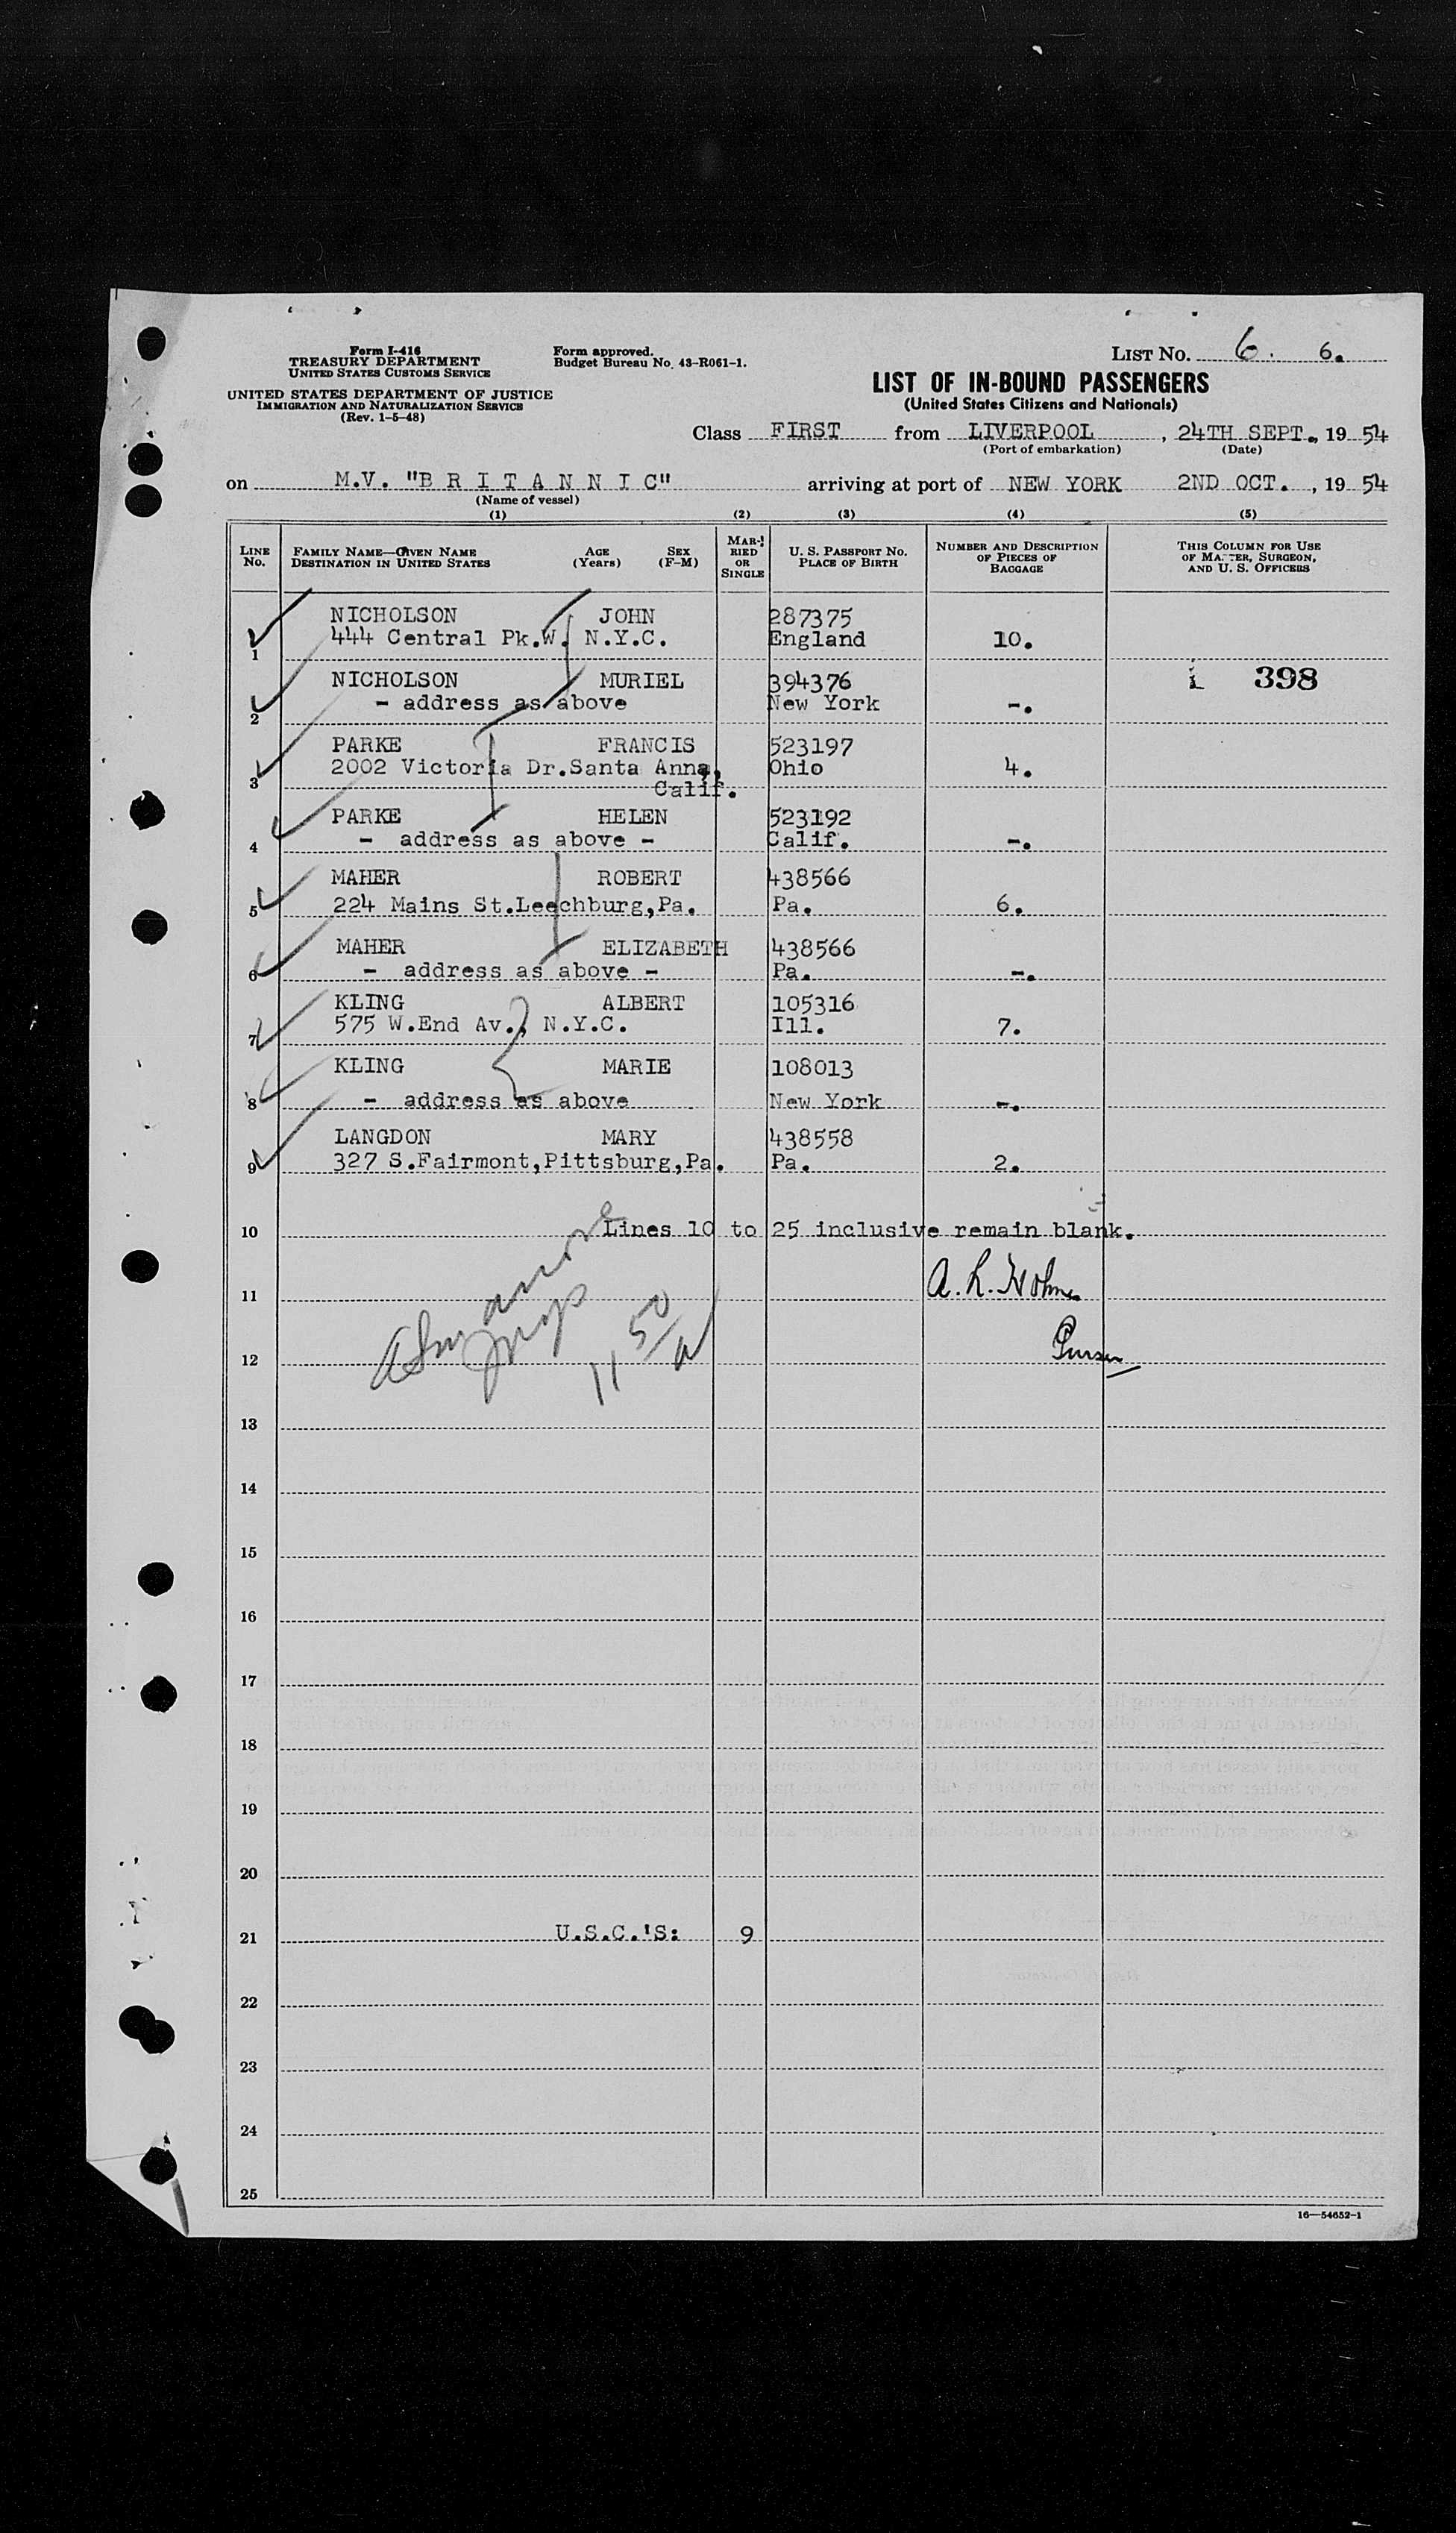 Form I-416
TREASURY DEPARTMENT
UNITED STATES CUSTOMS SERVICE
UNITED STATES DEPARTMENT OF JUSTICE
IMMIGRATION AND NATURALIZATION SERVICE
(Rev. 1-5-48)
Form approved.
Budget Bureau No. 43-R061-1.
LIST NO. 6. 6.
LIST OF IN-BOUND PASSENGERS
(United States Citizens and Nationals)
Class FIRST from LIVERPOOL, 24TH SEPT., 19 54
(Port of embarkation) (Date)
on M.V. "B R I T A N N I C" arriving at port of NEW YORK 2ND OCT., 19 54
(Name of vessel)
(1) (2) (3) (4) (5)
LINE NO.
FAMILY NAME—GIVEN NAME AGE SEX
DESTINATION IN UNITED STATES (Years) (F-M)
MARRIED OR SINGLE
U. S. PASSPORT NO.
PLACE OF BIRTH
NUMBER AND DESCRIPTION
OF PIECES OF
BAGGAGE
THIS COLUMN FOR USE
OF MASTER, SURGEON,
AND U. S. OFFICERS
NICHOLSON JOHN 287375
1 444 Central Pk.W. N.Y.C. England 10.
NICHOLSON MURIEL 394376 i 398
2 - address as above New York -.
PARKE FRANCIS 523197
3 2002 Victoria Dr.Santa Anna, Ohio 4.
Calif.
PARKE HELEN 523192
4 - address as above - Calif. -.
MAHER ROBERT 438566
5 224 Mains St.Leechburg,Pa. Pa. 6.
MAHER ELIZABETH 438566
6 - address as above - Pa. -.
KLING ALBERT 105316
7 575 W.End Av., N.Y.C. Ill. 7.
KLING MARIE 108013
8 - address as above New York -.
LANGDON MARY 438558
9 327 S.Fairmont,Pittsburg,Pa. Pa. 2.
10 Lines 10 to 25 inclusive remain blank.
11 A. L. Holme
12 Purser
11 50/a
13
14
15
16
17
18
19
20
21 U.S.C.'S: 9
22
23
24
25
16—54652-1